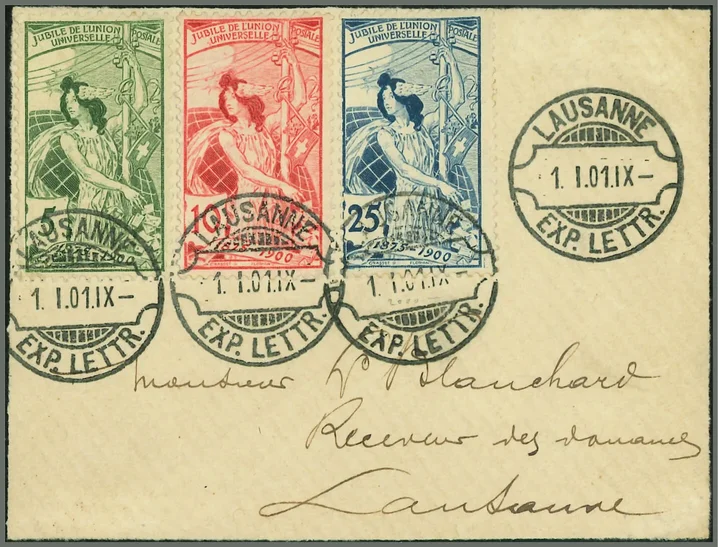 JUBILÉ DE L'UNION POSTALE
UNIVERSELLE
5
1875 1900
JUBILÉ DE L'UNION POSTALE
UNIVERSELLE
10
1875 1900
JUBILÉ DE L'UNION POSTALE
UNIVERSELLE
25
1875 1900
LAUSANNE
1. I.01.IX–
EXP. LETTR.
LAUSANNE
1. I.01.IX–
EXP. LETTR.
LAUSANNE
1. I.01.IX–
EXP. LETTR.
LAUSANNE
1. I.01.IX–
EXP. LETTR.
Monsieur Blanchard
Receveur des douanes
Lausanne